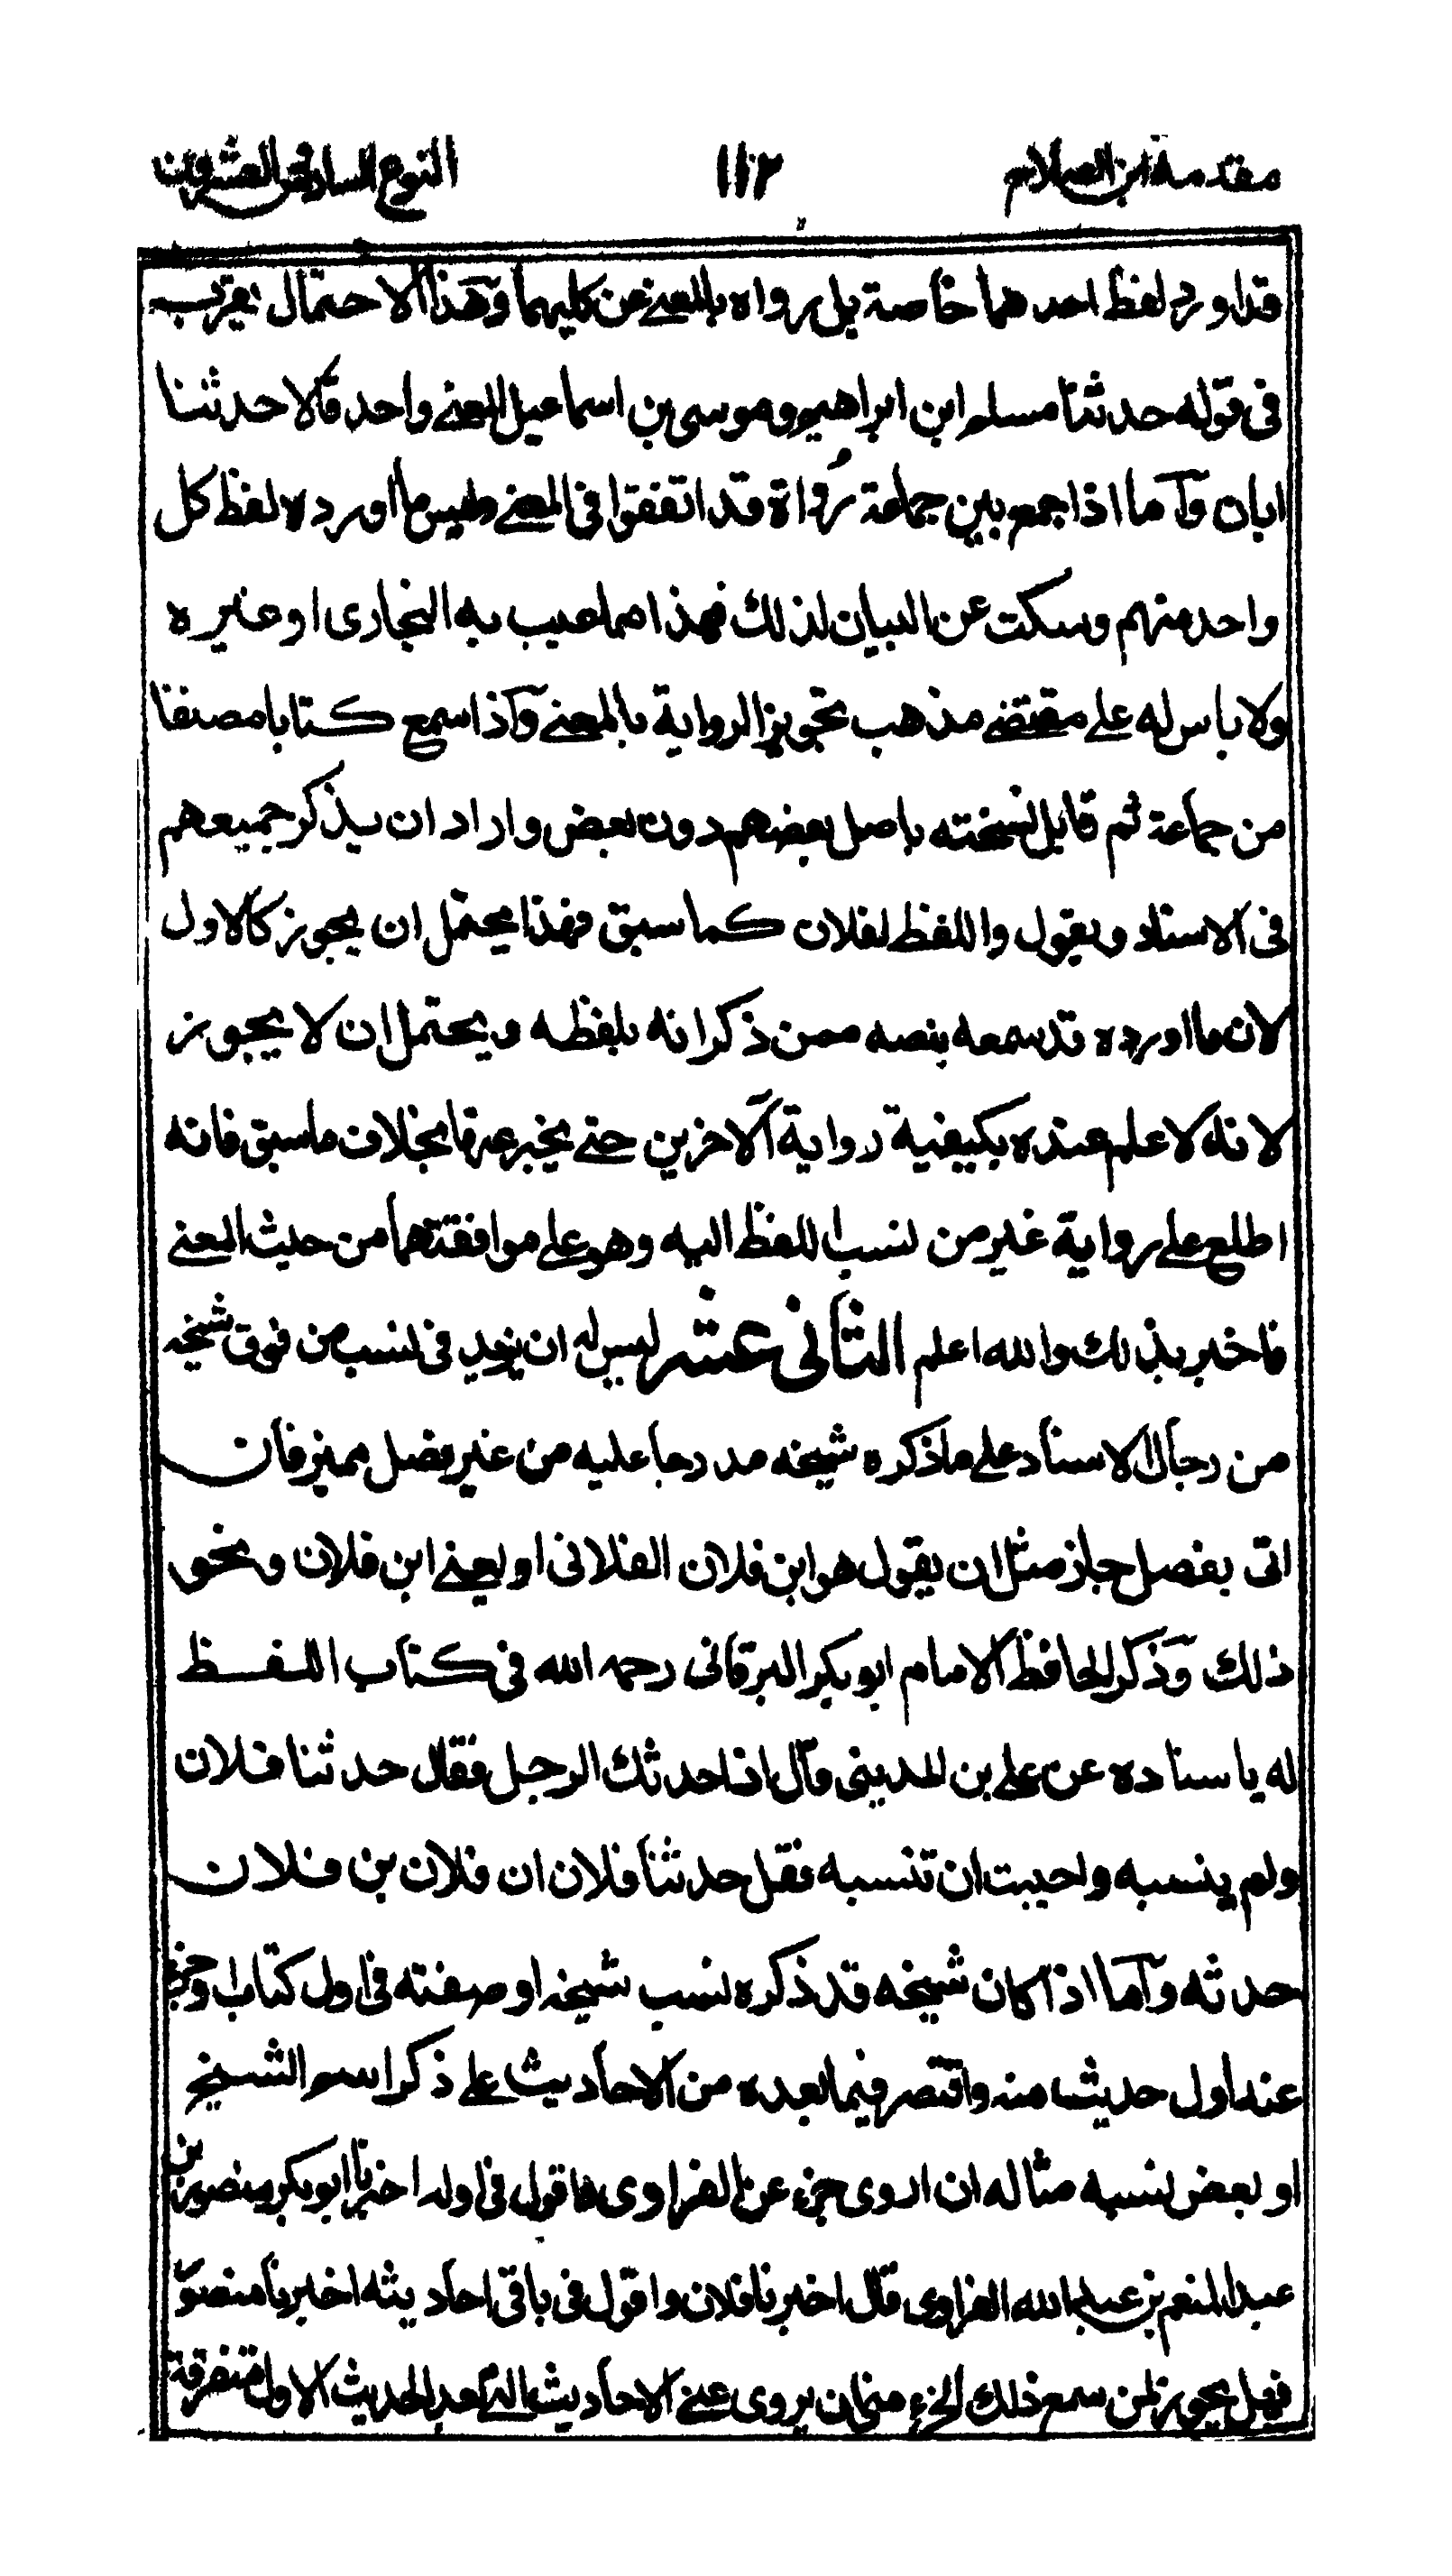 مقدمة ابن الصلاح ١١٢ النوع السادس العشرون
قد اورد لفظ احدهما خاصة بل رواه بالمعنے عن كليهما وهذا الاحتمال يقرب
فى قوله حدثنا مسلم ابن ابراهيم وموسى بن اسماعيل المعنے واحد قالا حدثنا
ابان وآما اذا جمع بين جماعة رُواة قد اتفقوا فى المعنے وليس ما اورده لفظ كل
واحد منهم وسكت عن البيان لذلك فهذا مما عيب به البخارى او غيره
ولا باس له علے مقتضے مذهب تجويز الرواية بالمعنے وآذا سمع كتابا مصنفا
من جماعة ثم قابل نسخته باصل بعضهم دون بعض واراد ان يذكر جميعهم
فى الاسناد ويقول واللفظ لفلان كما سبق فهذا يحتمل ان يجوز كالاول
لان ما اورده قد سمعه بنصه ممن ذكر انه بلفظه ويحتمل ان لا يجوز
لانه لا علم عنده بكيفية رواية الآخرين حتے يخبر عنها بخلاف ما سبق فانه
اطلع علے رواية غير من نسب اللفظ اليه وهو علے موافقتهما من حيث المعنے
فاخبر بذلك والله اعلم الثانى عشر ليس له ان يزيد فى نسب من فوق شيخه
من رجال الاسناد علے ما ذكره شيخه مدرجا عليه من غير فصل مميز فان
اتى بفصل جاز مثل ان يقول هو ابن فلان الفلانى او يعنے ابن فلان ونحو
ذلك وذكر الحافظ الامام ابو بكر البرقانى رحمه الله فى كتاب اللفظ
له باسناده عن علے بن المدينى قال اذا حدثك الرجل فقال حدثنا فلان
ولم ينسبه واحببت ان تنسبه فقل حدثنا فلان ان فلان بن فلان
حدثه وآما اذا كان شيخه قد ذكره نسب شيخه او صفته فى اول كتاب او جزء
عند اول حديث منه واقتصر فيما بعده من الاحاديث علے ذكر اسم الشيخ
او بعض نسبه مثاله ان اروى جزء عن الفراوى فاقول فى اوله اخبرنا ابو بكر منصور بن
عبد المنعم بن عبد الله الفراوى قال اخبرنا فلان واقول فى باقى احاديثه اخبرنا منصور
فهل يجوز لمن سمع ذلك الجزء منى ان يروى عنے الاحاديث التے بعد الحديث الاول متفرقة